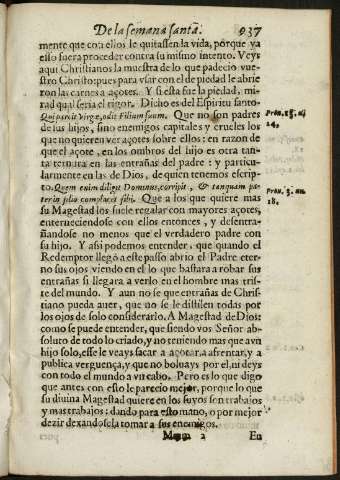 De la semana santa. 937
mente que con ellos le quitassen la vida, porque ya
esso fuera proceder contra su mismo intento. Veys
aqui Christianos la muestra de lo que padecio vue-
stro Christo: pues para vsar con el de piedad le abrie
ron las carnes a açotes. Y si esta fue la piedad, mi-
rad qual seria el rigor. Dicho es del Espiritu santo.
Qui parcit virgæ, odit Filium suum. Que no son padres
de sus hijos, sino enemigos capitales y crueles los
que no quieren ver açotes sobre ellos: en razon de
que el açote, en los ombros del hijo es otra tan
ta ternura en las entrañas del padre: y particu-
larmente en las de Dios, de quien tenemos escrip-
to. Quem enim diligit Dominus, corripit, & tanquam pa-
ter in filio complacet sibi. Que a los que quiere mas
su Magestad los suele regalar con mayores açotes,
enterneciendose con ellos entonces, y desentra-
ñandose no menos que el verdadero padre con
su hijo. Y assi podemos entender, que quando el
Redemptor llegò a este passo abrio el Padre eter-
no sus ojos viendo en el lo que bastara a robar sus
entrañas si llegara a verlo en el hombre mas tris-
te del mundo. Y aun no se que entrañas de Chris-
tiano pueda auer, que no se le distilen todas por
los ojos de solo considerarlo. A Magestad de Dios:
como se puede entender, que siendo vos Señor ab-
soluto de todo lo criado, y no teniendo mas que avn
hijo solo, esse le veays sacar a açotar, a afrentar, y a
publica verguença, y que no boluays por el, ni deys
con todo el mundo a vn cabo. Pero es lo que digo
que antes con esso le parecio mejor, porque lo que
su diuina Magestad quiere en los suyos son trabajos
y mas trabajos: dando para esto mano, o por mejor
dezir dexandosela tomar a sus enemigos.
2 En
Prou.
24.
Prou. 3. nu.
18.